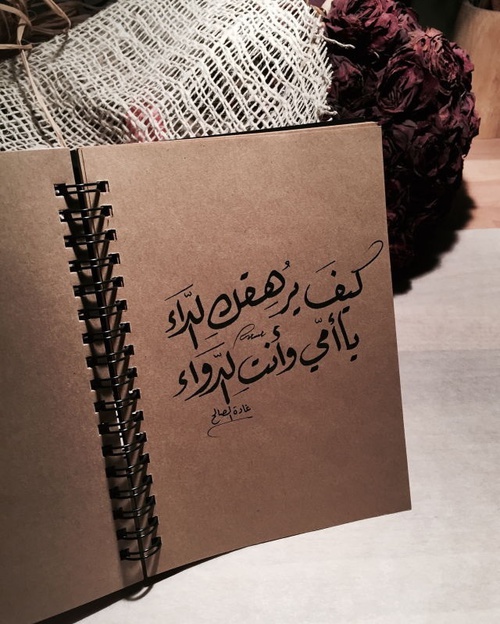 كيفَ يُرهِقك الدَّاءَ
يا أمّي وأنت الدَّوَاء
غادة الصالح